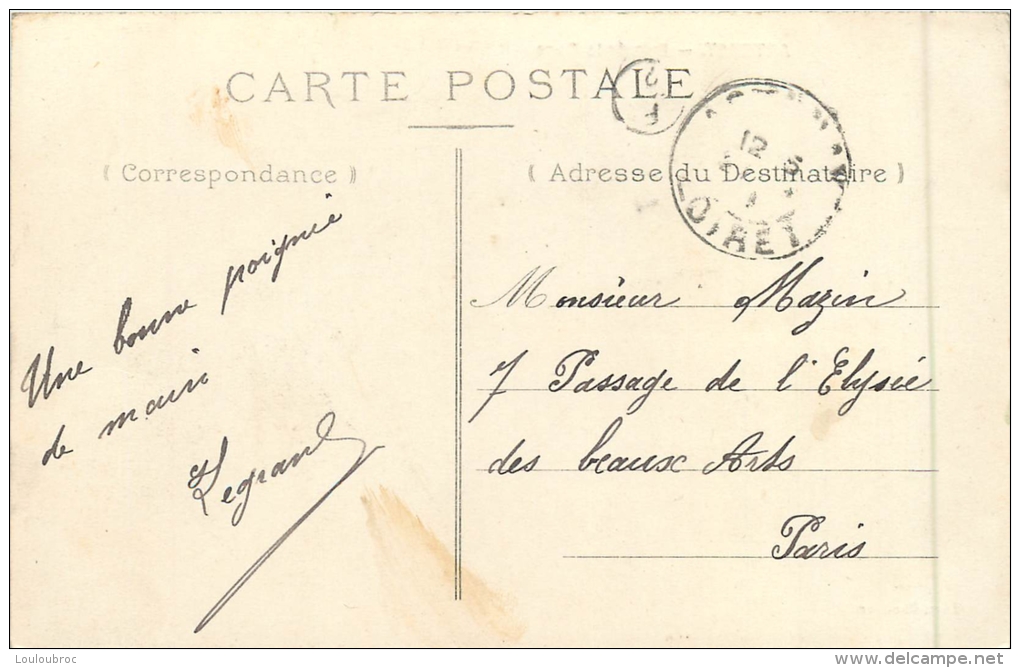 CARTE POSTALE
( Correspondance )
( Adresse du Destinataire )
F
LOIRET
12
Une bonne poignée
de main
Legrand
Monsieur Mazin
7 Passage de l'Elysée
des beaux Arts
Paris
Louloubroc
delcampe.net